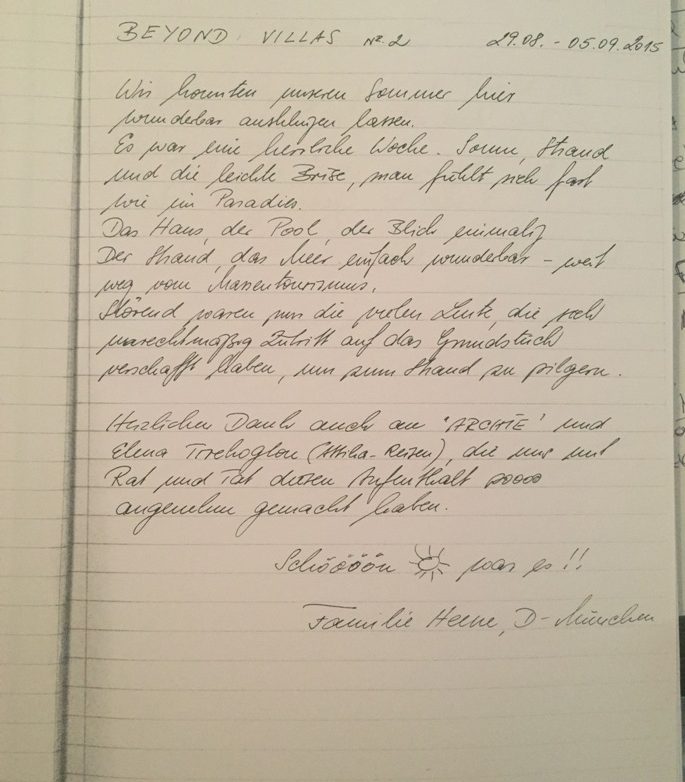 BEYOND VILLAS Nr. 2 29.08. - 05.09.2015
Wir konnten unseren Sommer hier
wunderbar ausklingen lassen.
Es war eine herrliche Woche. Sonne, Strand
und die leichte Brise, man fühlt sich fast
wie im Paradies.
Das Haus, der Pool, der Blick einmalig
Der Strand, das Meer einfach wunderbar - weit
weg vom Massentourismus.
Störend waren nur die vielen Leute, die sich
unrechtmäßig Zutritt auf das Grundstück
verschafft haben, um zum Strand zu pilgern.
Herzlichen Dank auch an "ARCHIE" und
Elena (Attika-Reisen), die uns mit
Rat und Tat diesen Aufenthalt soooo
angenehm gemacht haben.
Schööööön war es!!
Familie D-München